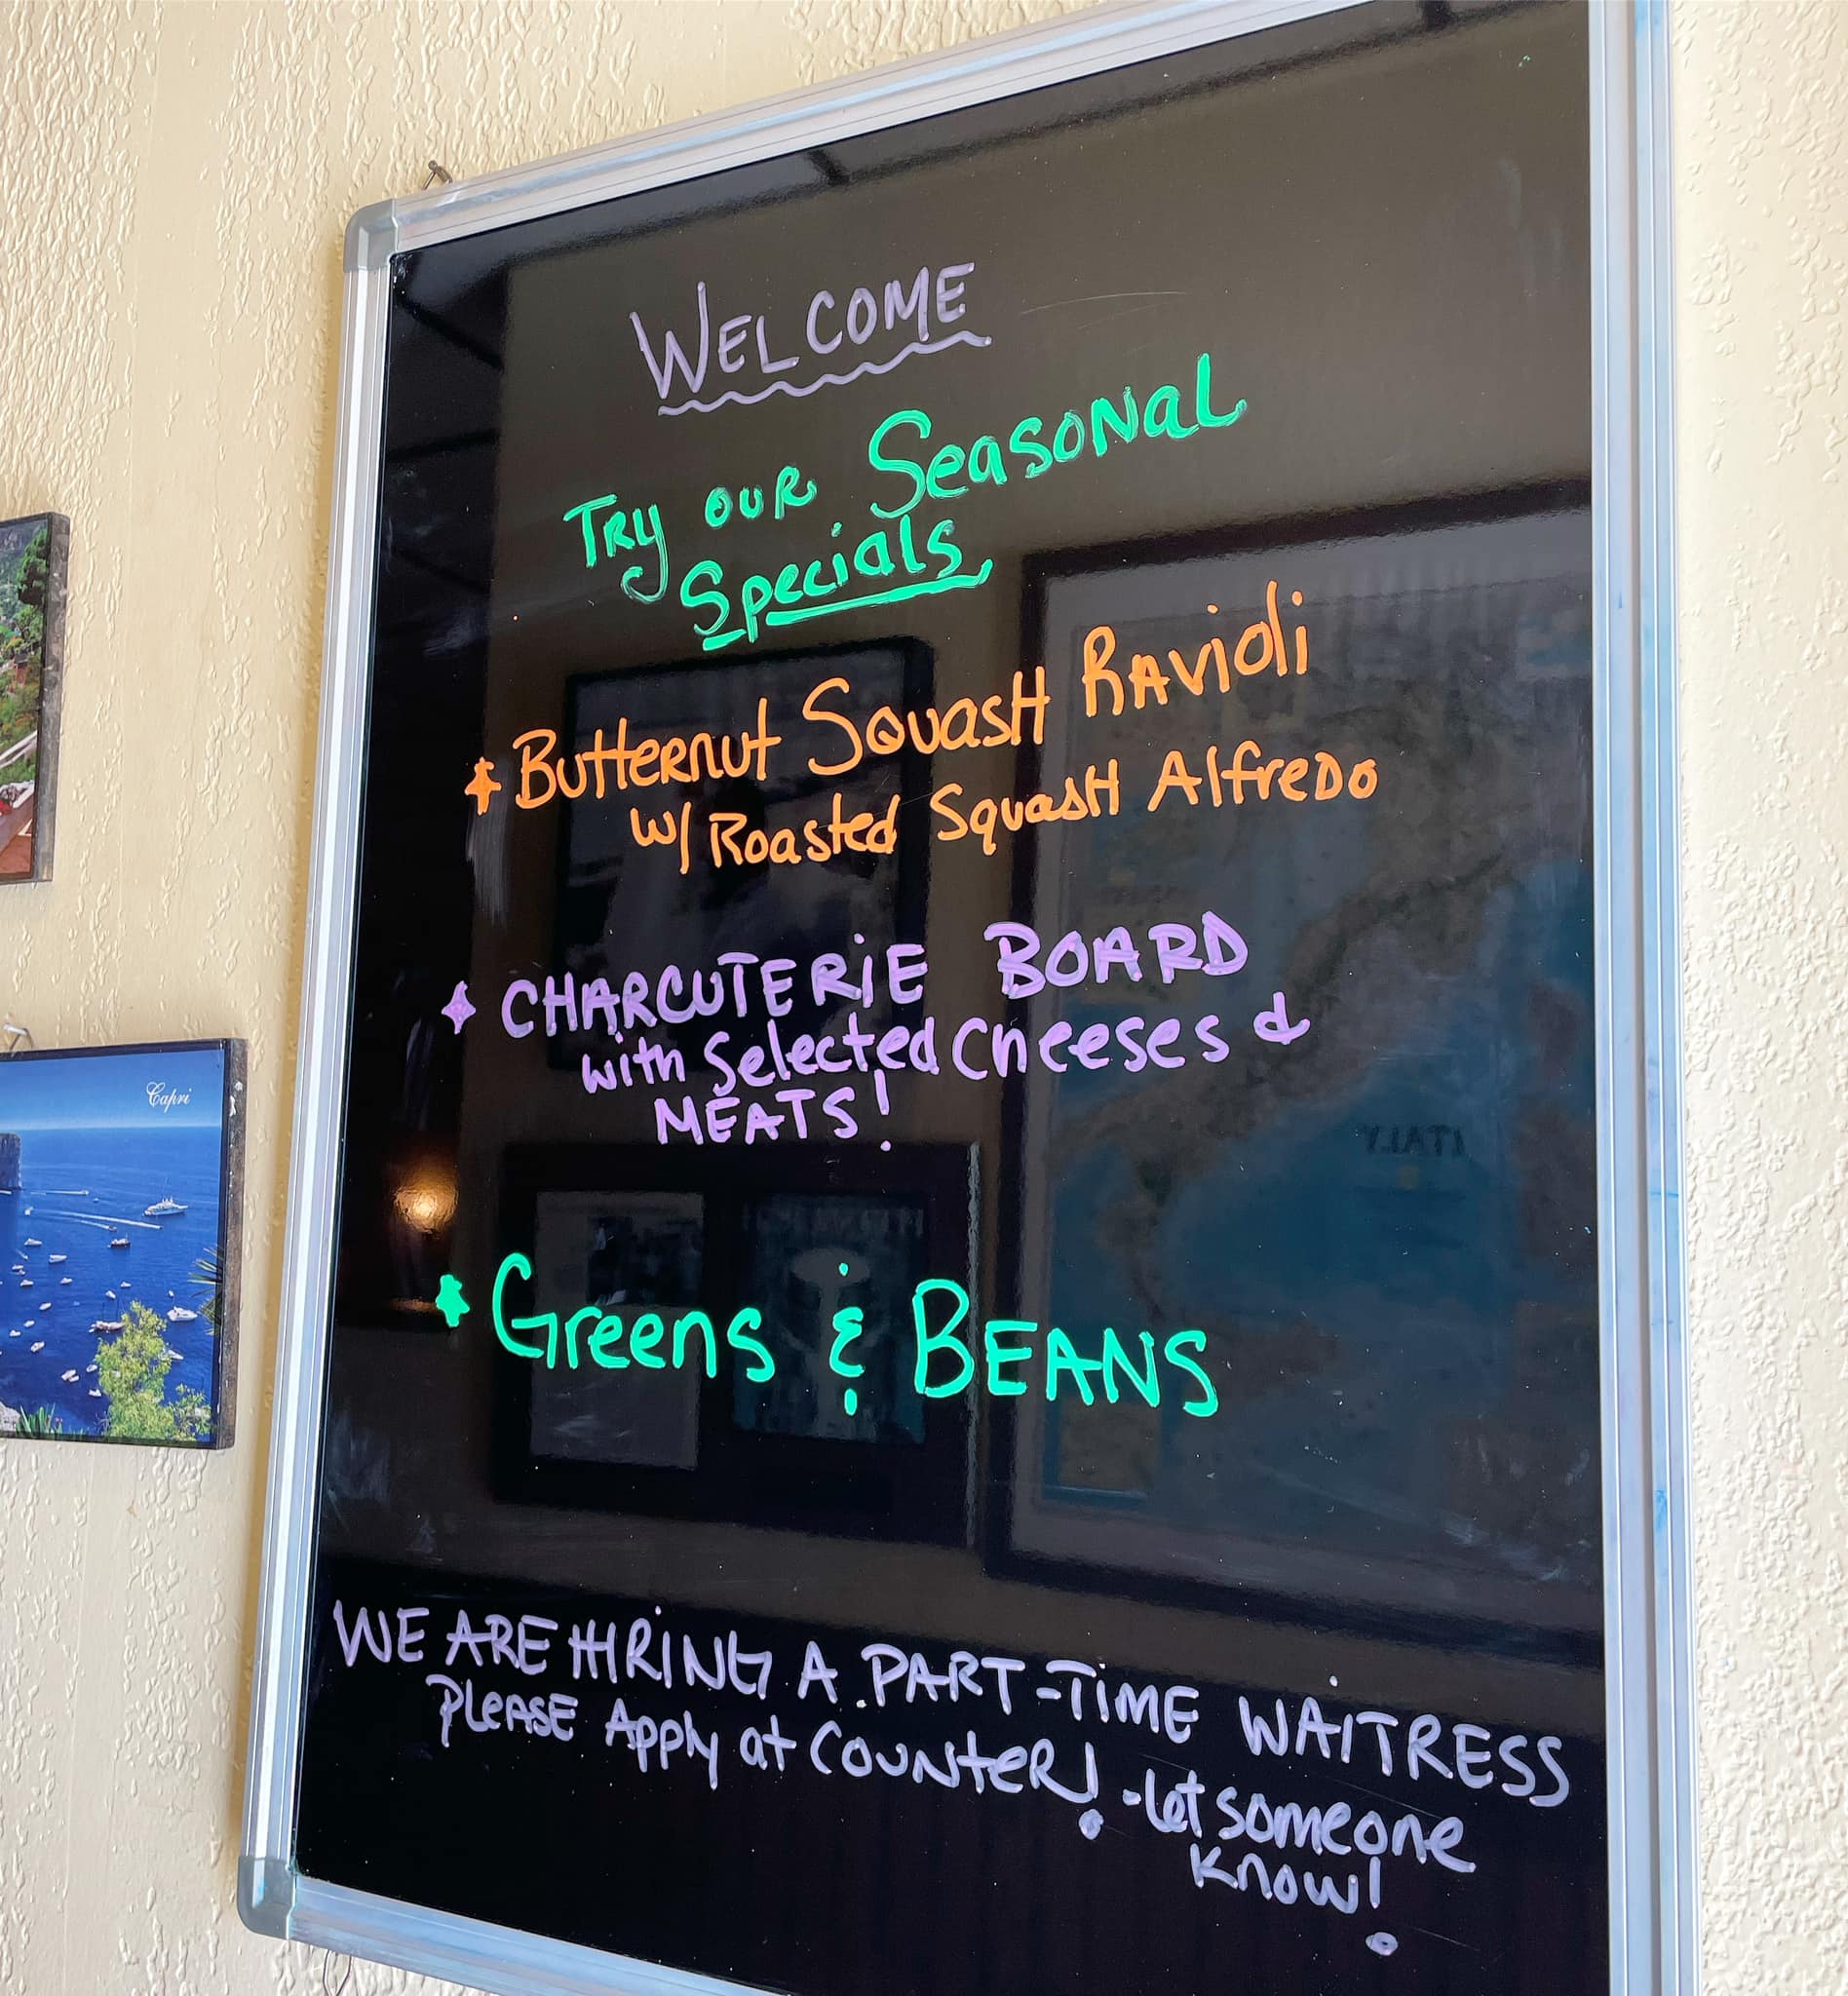 WELCOME
TRY OUR SeasoNal
Specials
* ButteRNut SquasH RAvioli
w/ Roasted SquasH AlfreDo
* CHARCUTERiE BOARD
with Selected Cheeses &
MEATS!
* Greens & BEANS
WE ARE HIRiNG A PART-TiME WAiTRESS
PleASE Apply at COUNteR! - let someone
know!
Capri
ITALY